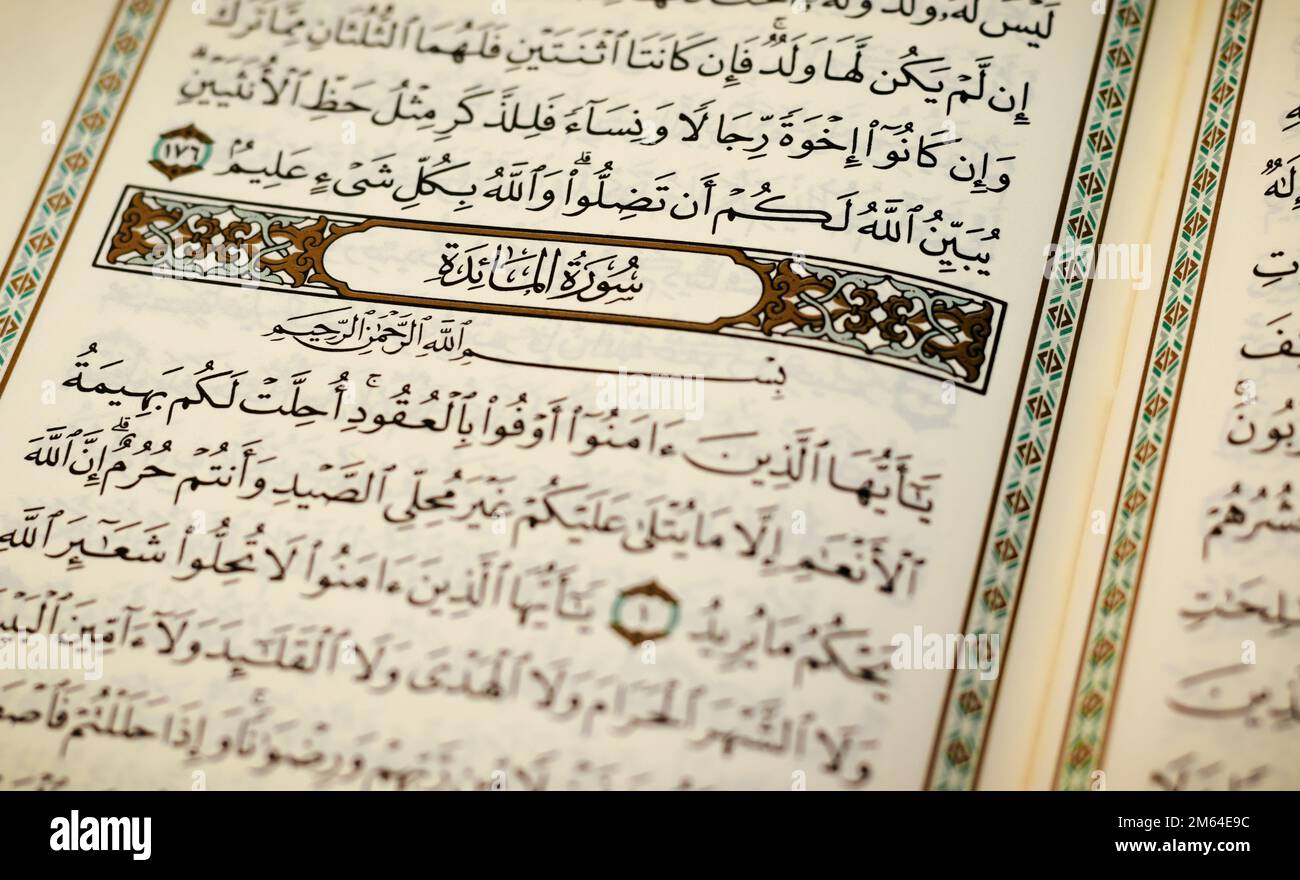 لَيْسَ لَهُۥ وَلَدٌ وَلَهُۥٓ
إِن لَّمْ يَكُن لَّهَا وَلَدٌ ۚ فَإِن كَانَتَا ٱثْنَتَيْنِ فَلَهُمَا ٱلثُّلُثَانِ مِمَّا تَرَكَ ۚ
وَإِن كَانُوٓا۟ إِخْوَةً رِّجَالًا وَنِسَآءً فَلِلذَّكَرِ مِثْلُ حَظِّ ٱلْأُنثَيَيْنِ ۗ
يُبَيِّنُ ٱللَّهُ لَكُمْ أَن تَضِلُّوا۟ ۗ وَٱللَّهُ بِكُلِّ شَىْءٍ عَلِيمٌۢ ١٧٦
سُورَةُ المَائِدَةِ
بِسْمِ ٱللَّهِ ٱلرَّحْمَٰنِ ٱلرَّحِيمِ
يَٰٓأَيُّهَا ٱلَّذِينَ ءَامَنُوٓا۟ أَوْفُوا۟ بِٱلْعُقُودِ ۚ أُحِلَّتْ لَكُم بَهِيمَةُ
ٱلْأَنْعَٰمِ إِلَّا مَا يُتْلَىٰ عَلَيْكُمْ غَيْرَ مُحِلِّى ٱلصَّيْدِ وَأَنتُمْ حُرُمٌ ۗ إِنَّ ٱللَّهَ
يَحْكُمُ مَا يُرِيدُ ١ يَٰٓأَيُّهَا ٱلَّذِينَ ءَامَنُوا۟ لَا تُحِلُّوا۟ شَعَٰٓئِرَ ٱللَّهِ
وَلَا ٱلشَّهْرَ ٱلْحَرَامَ وَلَا ٱلْهَدْىَ وَلَا ٱلْقَلَٰٓئِدَ وَلَآ ءَآمِّينَ
رَّبِّهِمْ وَرِضْوَٰنًا ۚ وَإِذَا حَلَلْتُمْ
alamy
Image ID: 2M64E9C
www.alamy.com